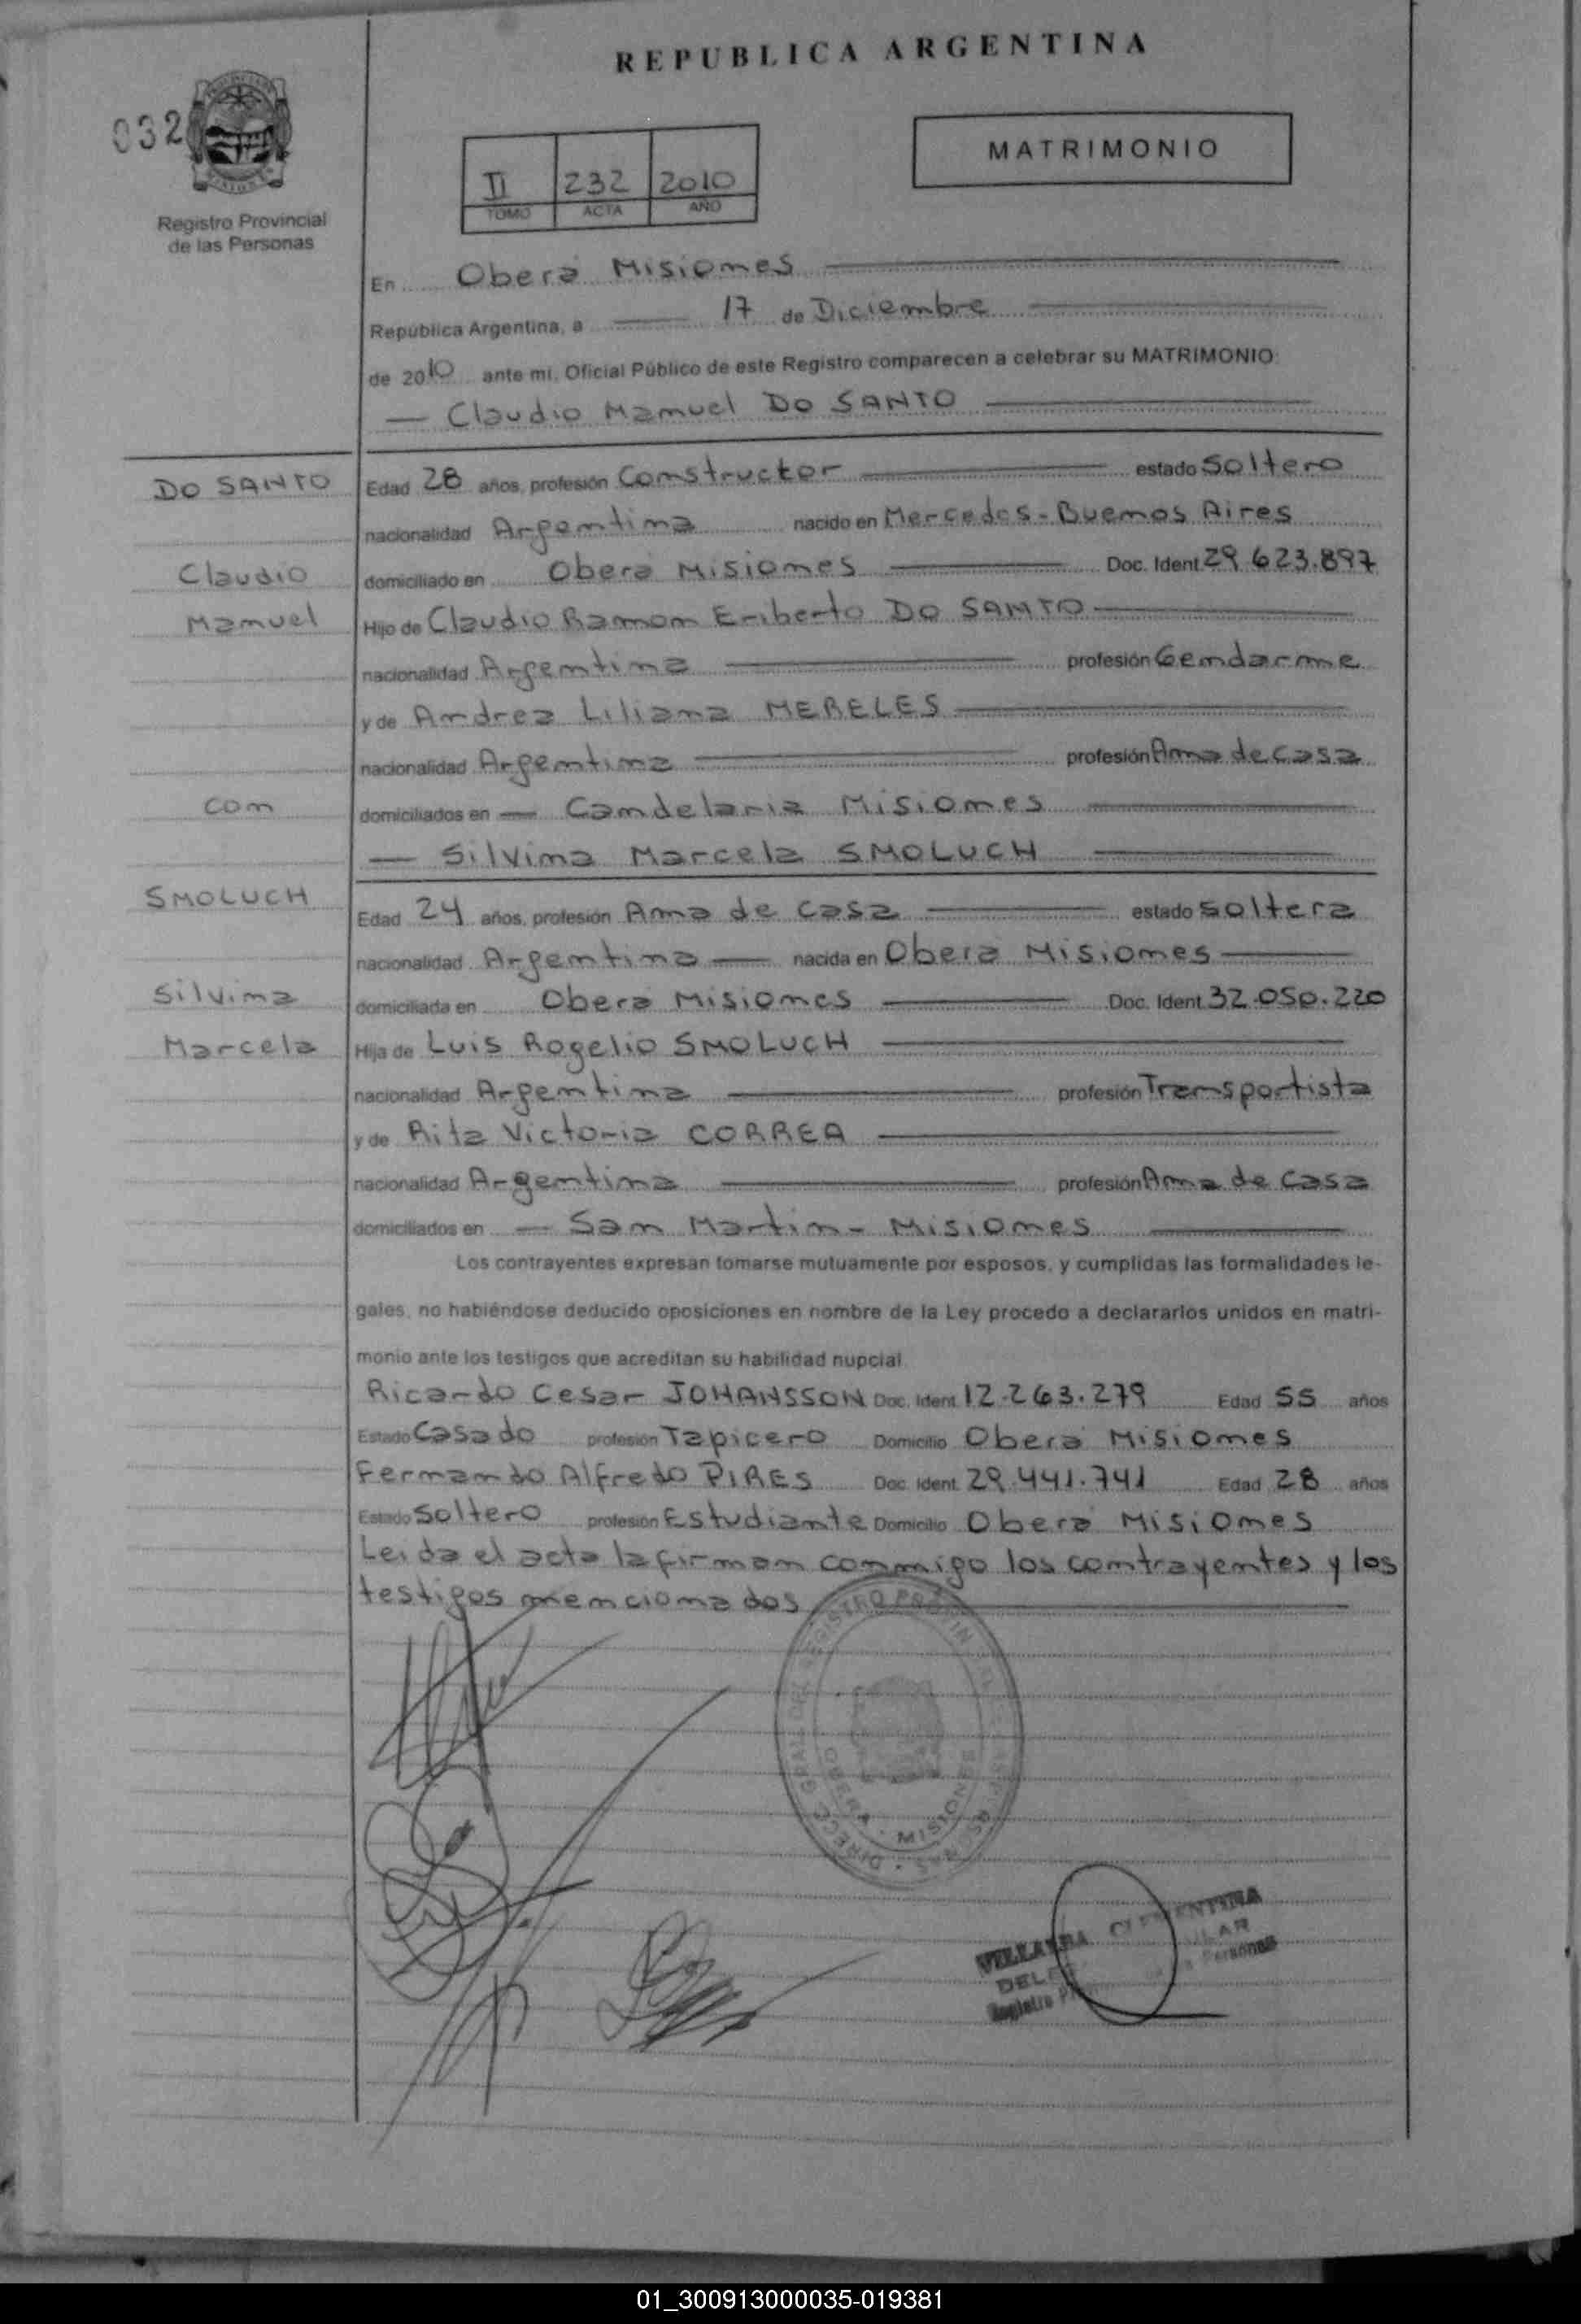 REPUBLICA ARGENTINA
032
MATRIMONIO
II 232 2010
TOMO ACTA AÑO
Registro Provincial
de las Personas
En Oberá Misiones
República Argentina, a 17 de Diciembre
de 2010 ante mi, Oficial Público de este Registro comparecen a celebrar su MATRIMONIO:
Claudio Manuel DO SANTO
DO SANTO Edad 28 años, profesión Constructor estado Soltero
nacionalidad Argentina nacido en Mercedes - Buenos Aires
Claudio domiciliado en Oberá Misiones Doc. Ident 29.623.897
Manuel Hijo de Claudio Ramon Eriberto DO SANTO
nacionalidad Argentina profesión Gendarme
y de Andrea Liliana MERELES
nacionalidad Argentina profesión Ama de Casa
con domiciliados en Candelaria Misiones
Silvina Marcela SMOLUCH
SMOLUCH Edad 24 años, profesión Ama de Casa estado Soltera
nacionalidad Argentina nacida en Oberá Misiones
Silvina domiciliada en Oberá Misiones Doc. Ident 32.050.220
Marcela Hija de Luis Rogelio SMOLUCH
nacionalidad Argentina profesión Transportista
y de Rita Victoria CORREA
nacionalidad Argentina profesión Ama de Casa
domiciliados en San Martin - Misiones
Los contrayentes expresan tomarse mutuamente por esposos, y cumplidas las formalidades le-
gales, no habiéndose deducido oposiciones en nombre de la Ley procedo a declararlos unidos en matri-
monio ante los testigos que acreditan su habilidad nupcial
Ricardo Cesar JOHANSSON Doc. Ident 12.263.279 Edad 55 años
Estado Casado profesión Tapicero Domicilio Oberá Misiones
Fernando Alfredo PIRES Doc. Ident. 29.441.741 Edad 28 años
Estado Soltero profesión Estudiante Domicilio Oberá Misiones
Leida el acta la firman conmigo los contrayentes y los
testigos mencionados
OBERA - MISIONES
VILLALBA CLEMENTINA
01_300913000035-019381